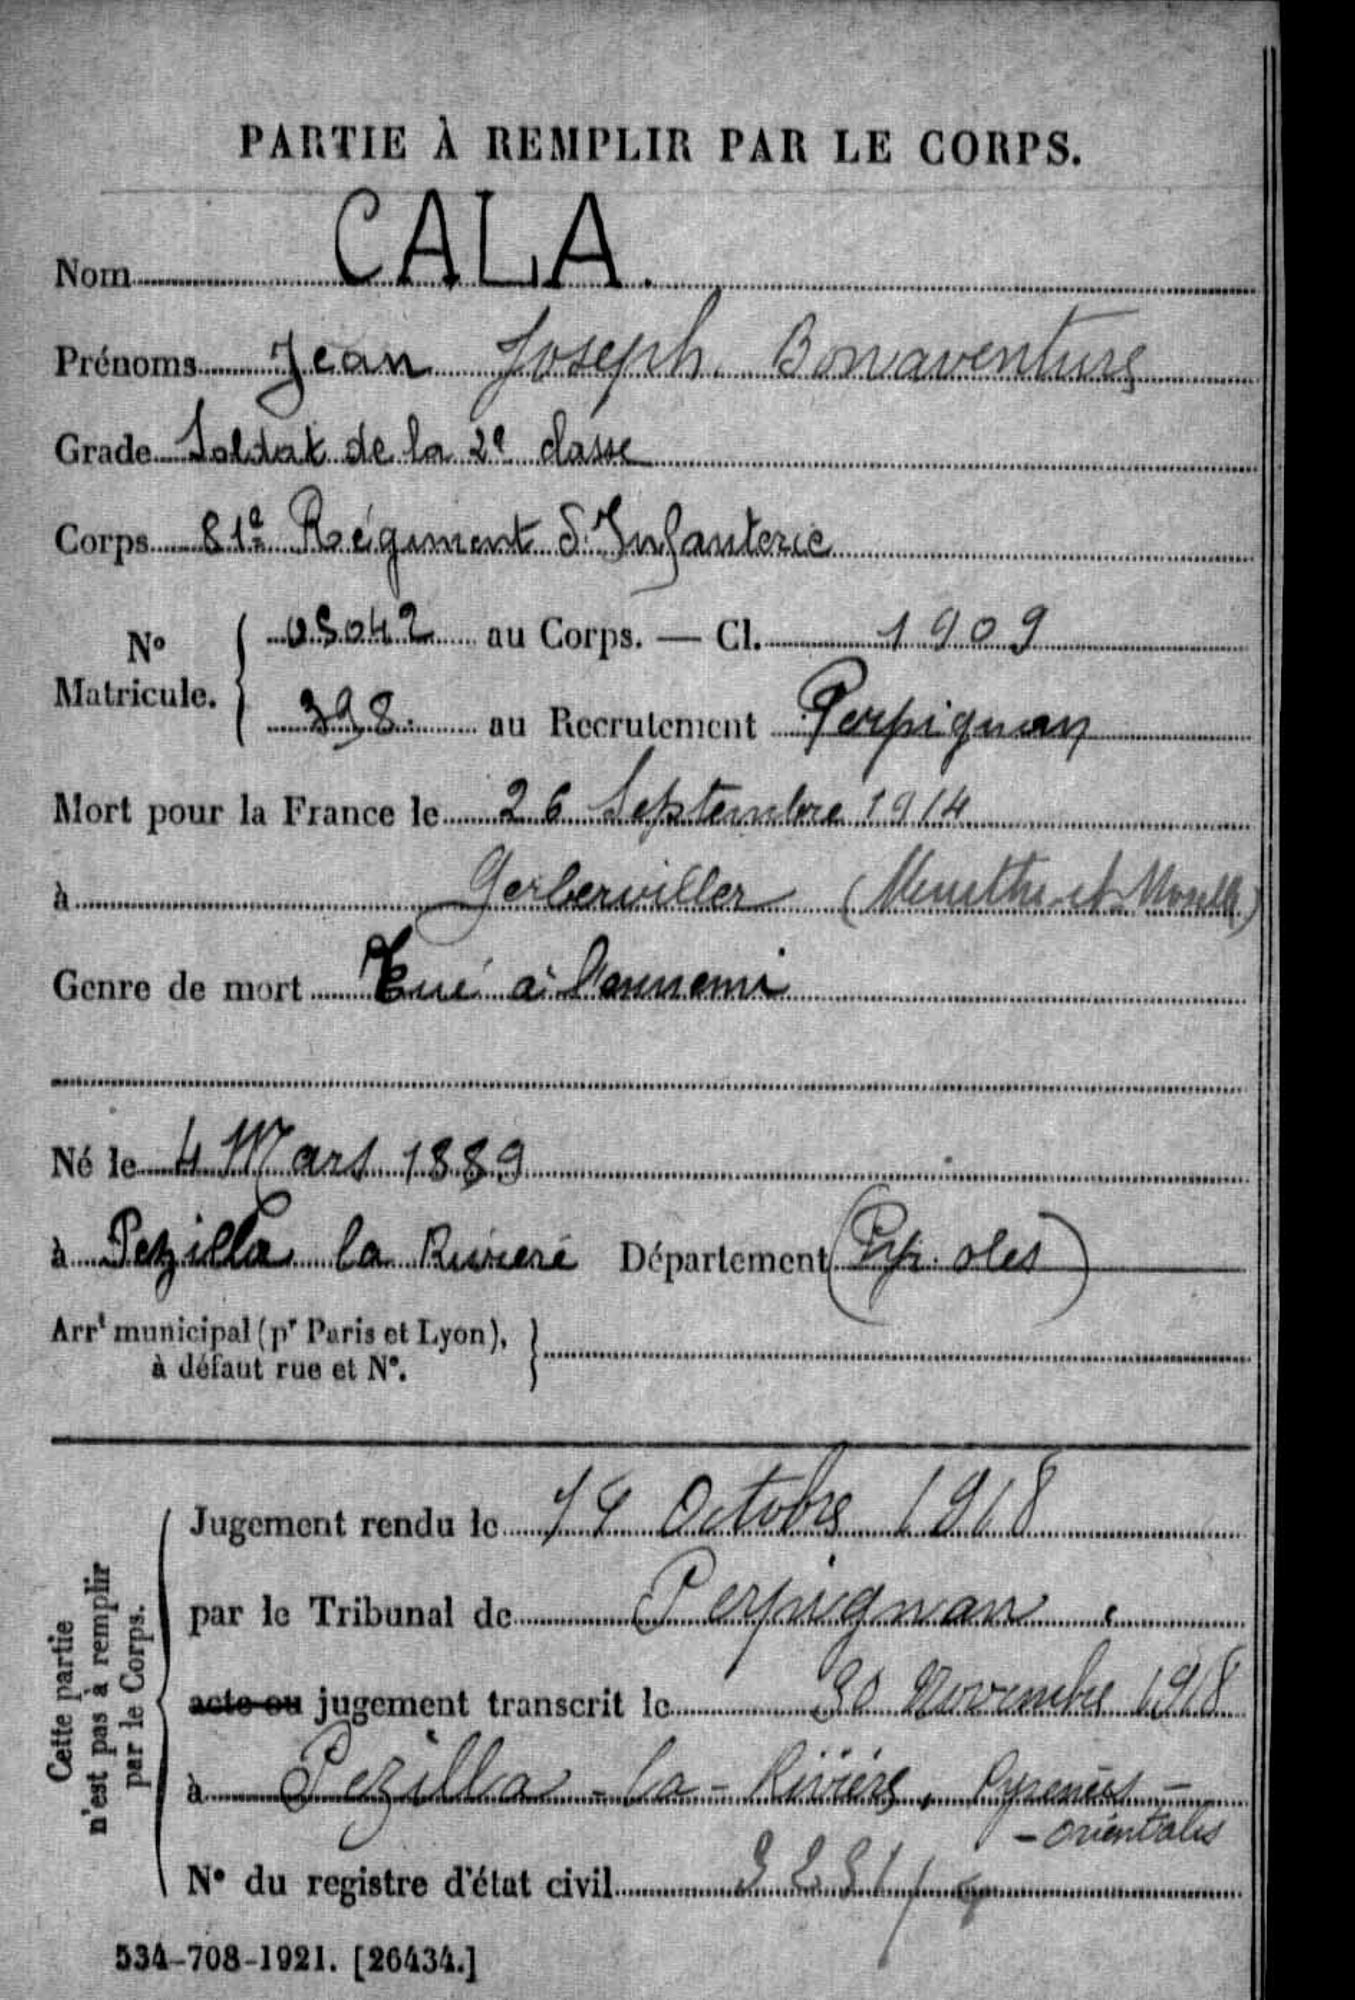 PARTIE À REMPLIR PAR LE CORPS.
Nom CALA.
Prénoms Jean Joseph. Bonaventure
Grade Soldat de la 2e classe
Corps 81e Régiment d'Infanterie
No Matricule. { 05042 au Corps. — Cl. 1909
398. au Recrutement Perpignan
Mort pour la France le 26 Septembre 1914
à Gerberviller (Meurthe-et-Moselle)
Genre de mort Tué à l'ennemi
Né le 4 Mars 1889
à Pezilla la Riviere Département (Pyr. Oles)
Arrt municipal (pr Paris et Lyon), }
à défaut rue et No.
Cette partie
n'est pas à remplir
par le Corps.
Jugement rendu le 14 Octobre 1918
par le Tribunal de Perpignan.
acte ou jugement transcrit le 30 Novembre 1918
à Pezilla-la-Rivière, Pyrenées-
-orientales
No du registre d'état civil
534-708-1921. [26434.]